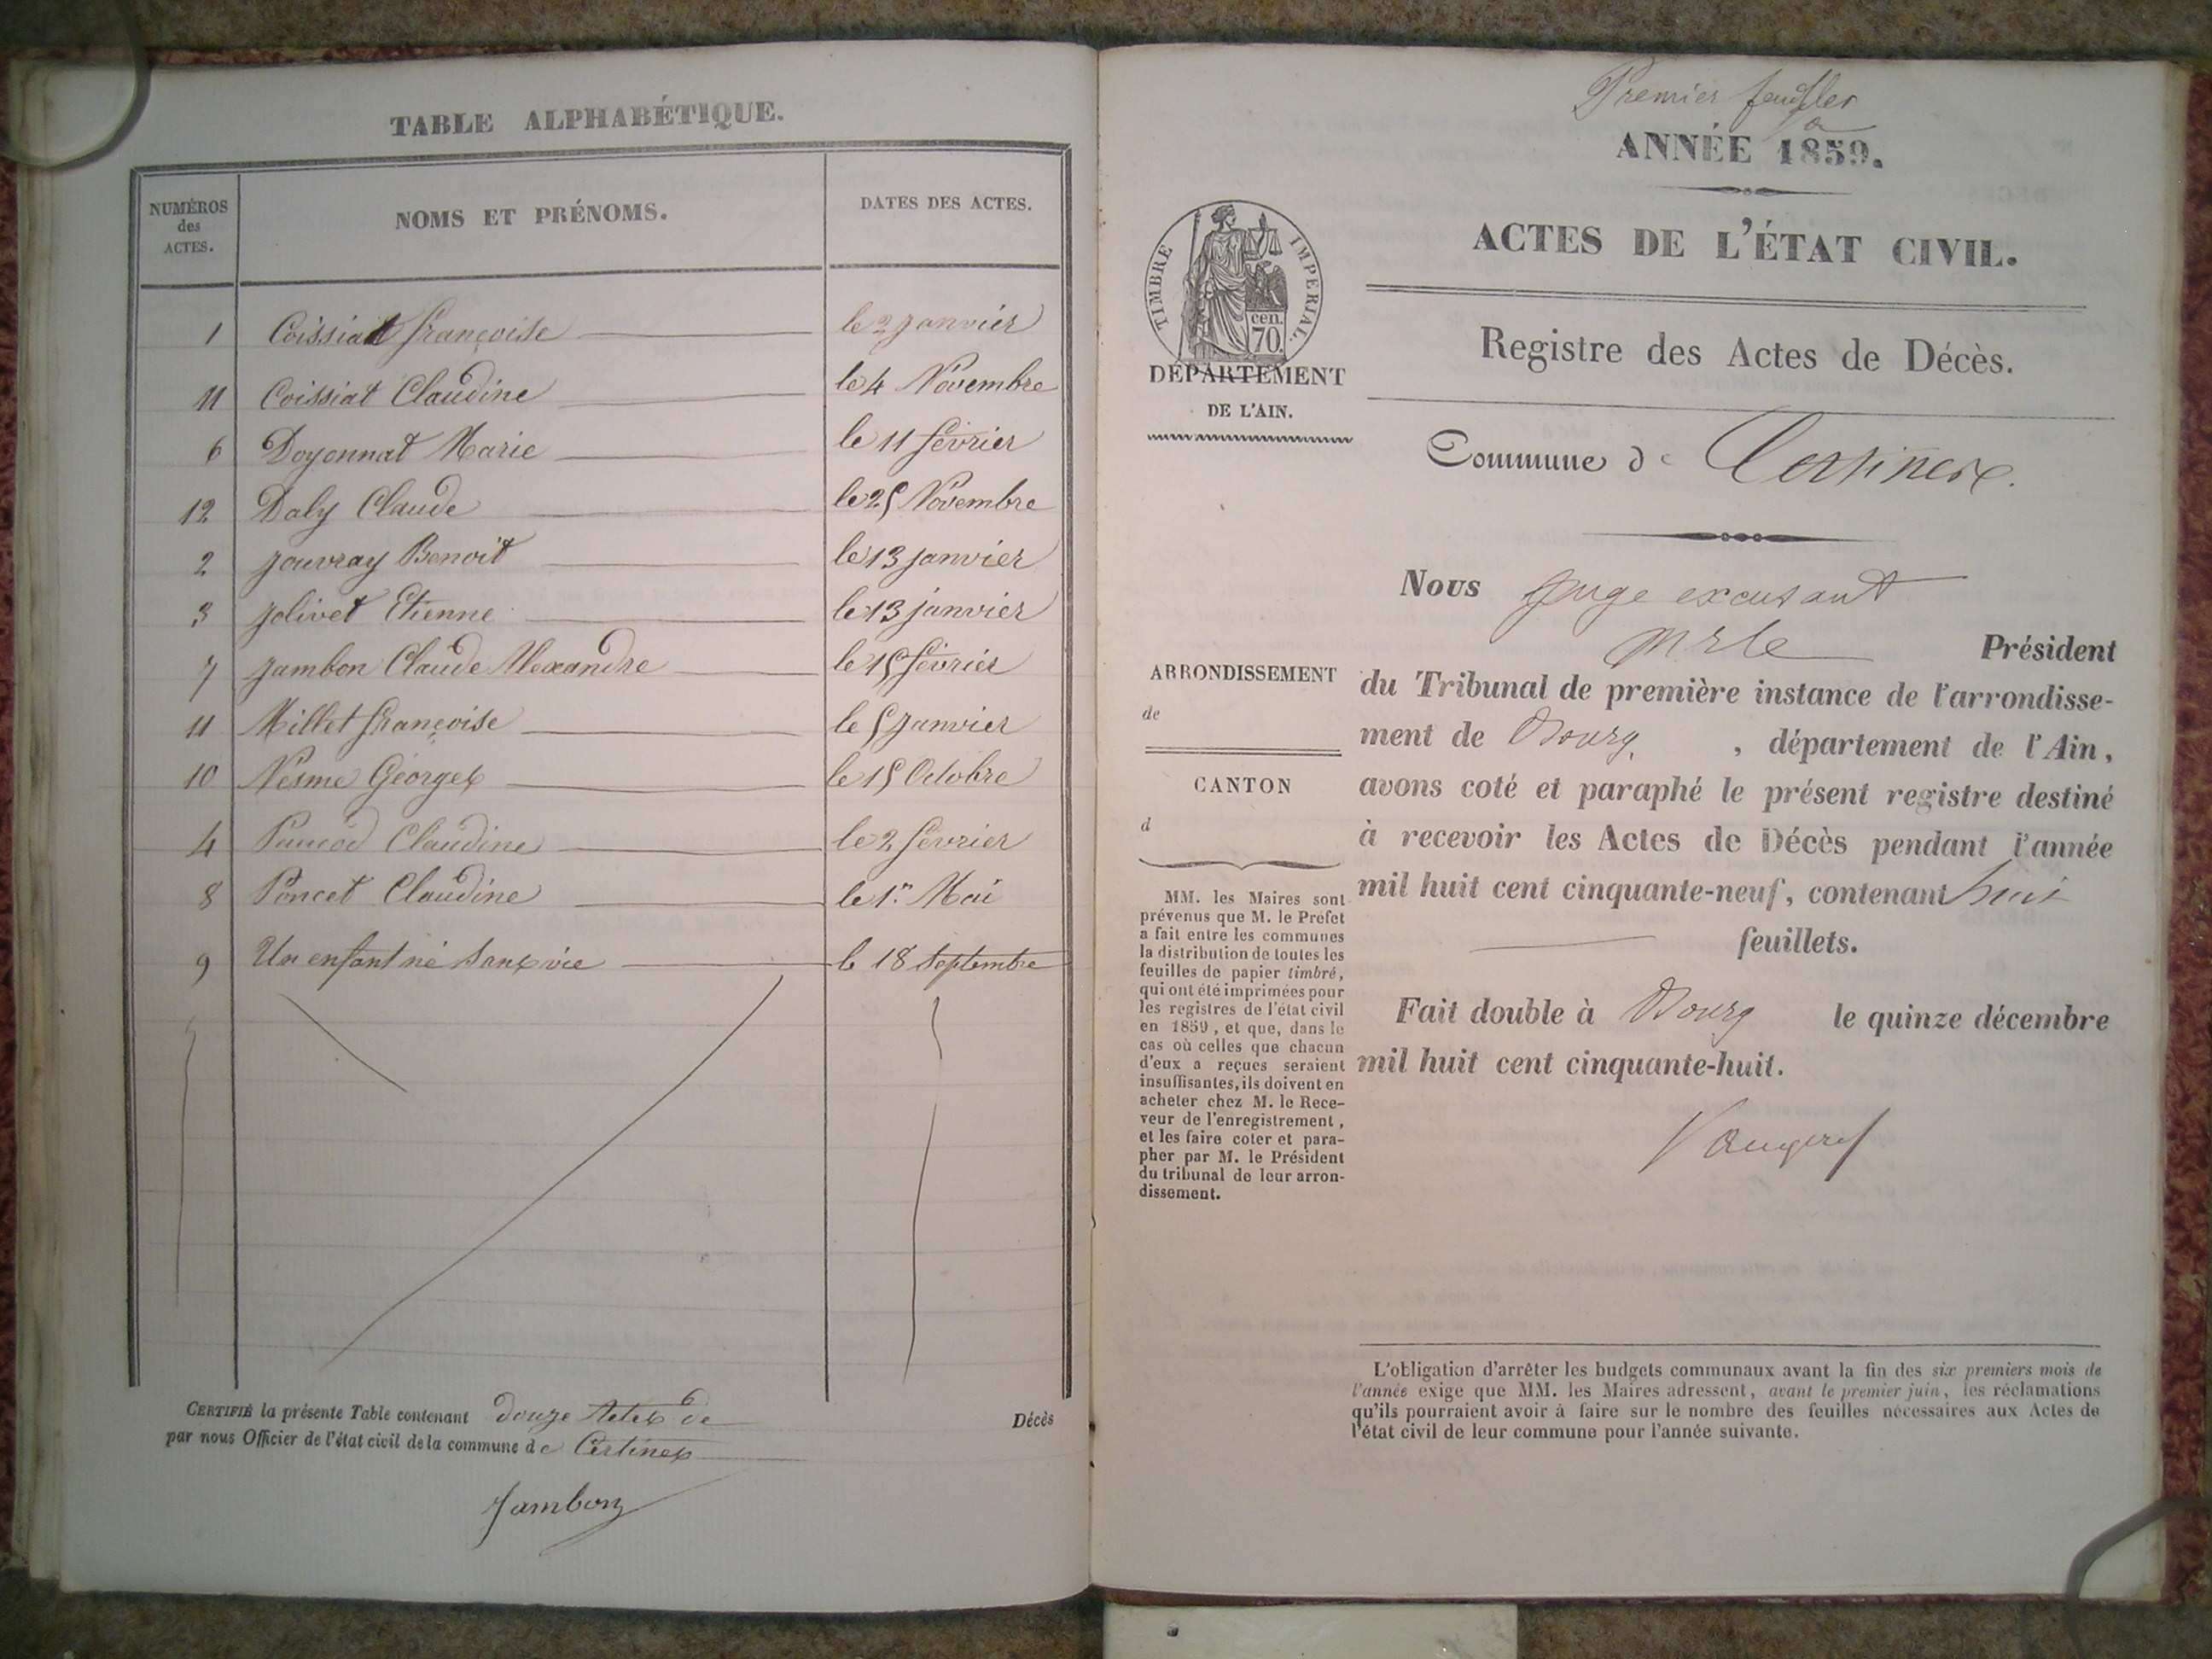 TABLE ALPHABÉTIQUE.
NUMÉROS
des
ACTES.
NOMS ET PRÉNOMS.
DATES DES ACTES.
1 Coissiat françoise le 2 janvier
11 Coissiat Claudine le 4 Novembre
6 Doyonnat Marie le 11 février
12 Daly Claude le 25 Novembre
2 jouvray Benoit le 13 janvier
3 jolivet Etienne le 13 janvier
7 jambon Claude Alexandre le 15 février
11 Millet françoise le 5 janvier
10 Nesme Georges le 15 Octobre
4 Claudine le 2 février
8 Poncet Claudine le 1er Mai
9 Un enfant né sans vie le 18 Septembre
CERTIFIÉ la présente Table contenant douze Actes de Décès
par nous Officier de l'état civil de la commune de Certines
Jambon
Premier feuillet
ANNÉE 1859.
ACTES DE L'ÉTAT CIVIL.
TIMBRE IMPERIAL.
cen.
70.
DÉPARTEMENT
DE L'AIN.
Registre des Actes de Décès.
Commune de Certines.
Nous Juge excusant
Mr le Président
du Tribunal de première instance de l'arrondisse-
ment de Bourg, département de l'Ain,
avons coté et paraphé le présent registre destiné
à recevoir les Actes de Décès pendant l'année
mil huit cent cinquante-neuf, contenant huit
feuillets.
Fait double à Bourg le quinze décembre
mil huit cent cinquante-huit.
ARRONDISSEMENT
de
CANTON
d
MM. les Maires sont
prévenus que M. le Préfet
a fait entre les communes
la distribution de toutes les
feuilles de papier timbré,
qui ont été imprimées pour
les registres de l'état civil
en 1859, et que, dans le
cas où celles que chacun
d'eux a reçues seraient
insuffisantes, ils doivent en
acheter chez M. le Rece-
veur de l'enregistrement,
et les faire coter et para-
pher par M. le Président
du tribunal de leur arron-
dissement.
L'obligation d'arrêter les budgets communaux avant la fin des six premiers mois de
l'année exige que MM. les Maires adressent, avant le premier juin, les réclamations
qu'ils pourraient avoir à faire sur le nombre des feuilles nécessaires aux Actes de
l'état civil de leur commune pour l'année suivante.